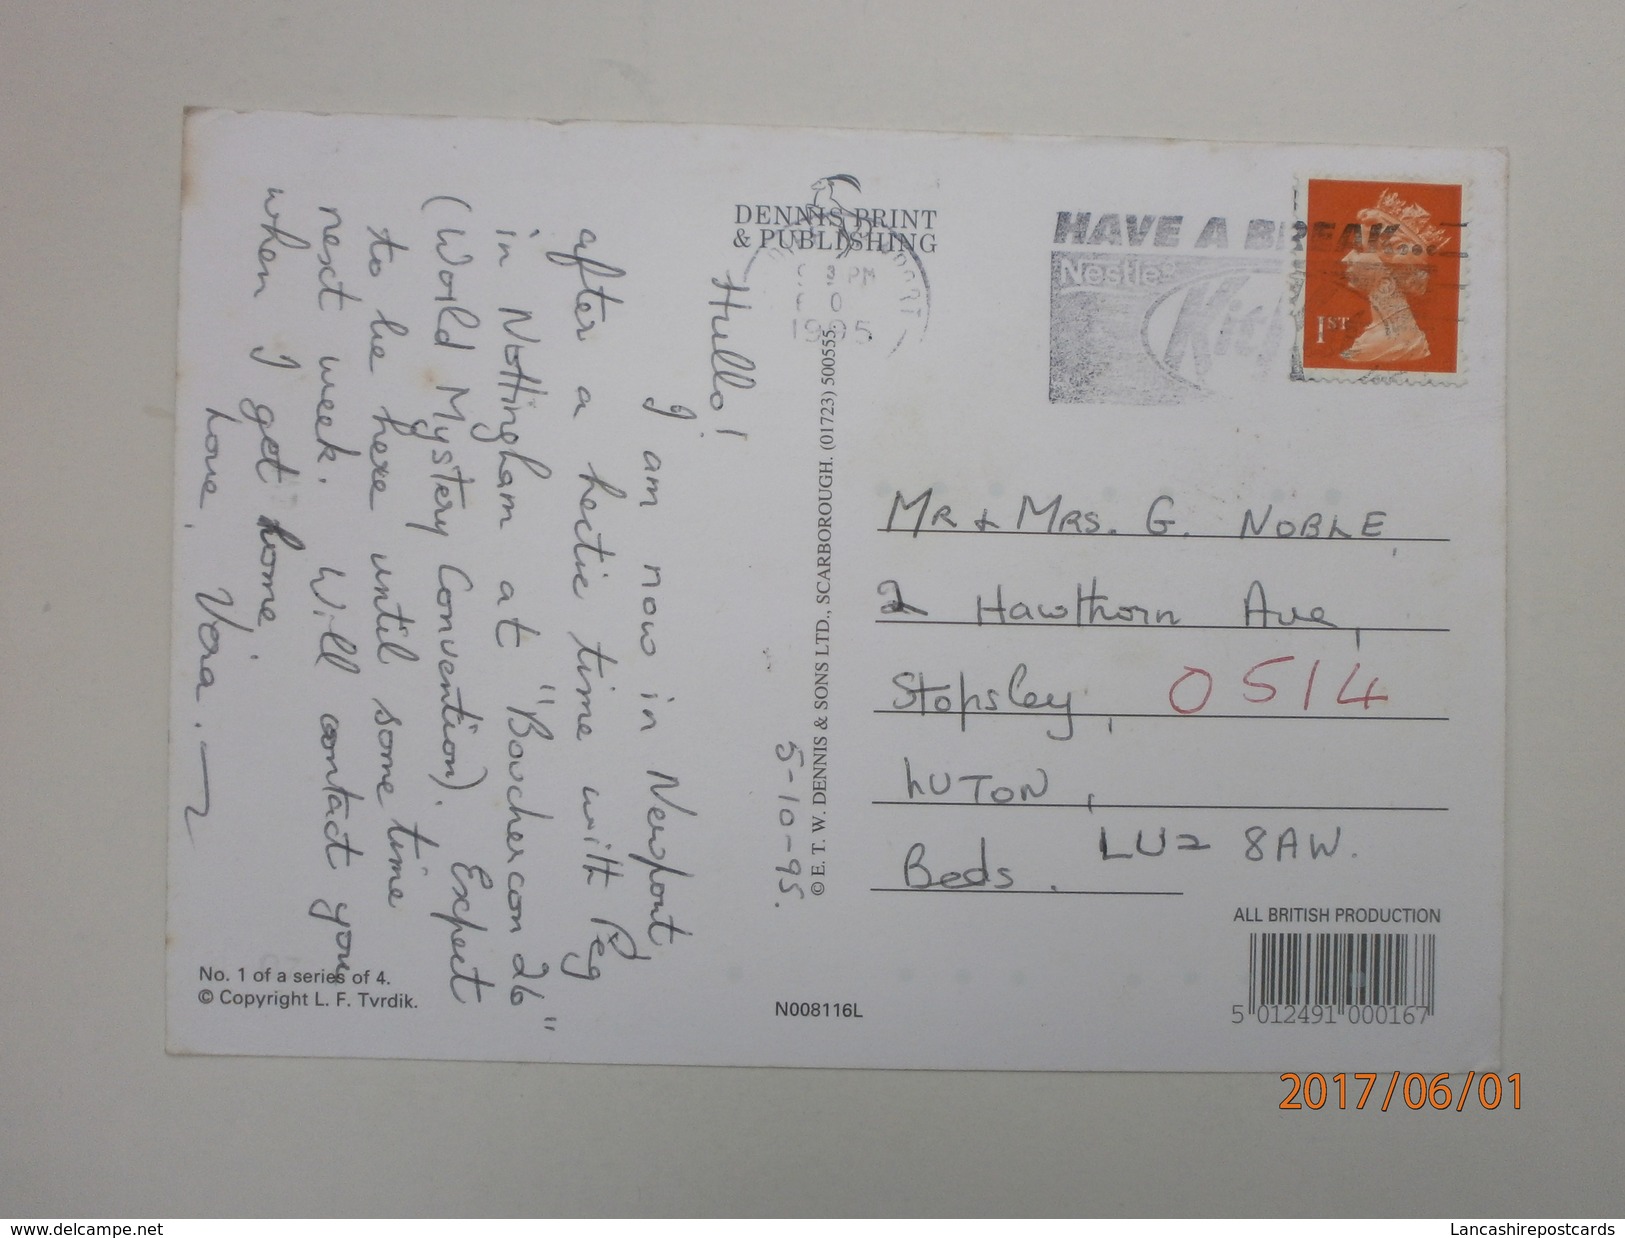 DENNIS PRINT
& PUBLISHING
3 PM
1995
HAVE A BREAK...
Nestle
1ST
5-10-95.
Hullo!
I am now in Newport,
after a hectic time with Peg
in Nottingham at "Bouchercon 26"
(World Mystery Convention). Expect
to be here until some time
next week. Will contact you
when I get home.
Love, Vera.
© E. T. W. DENNIS & SONS LTD., SCARBOROUGH. (01723) 500555.
MR & MRS. G. NOBLE,
2 Hawthorn Ave,
Stopsley, 0514
LUTON,
Beds. LU2 8AW.
No. 1 of a series of 4.
© Copyright L. F. Tvrdik.
N008116L
ALL BRITISH PRODUCTION
5 012491 000167
2017/06/01
www.delcampe.net
Lancashirepostcards